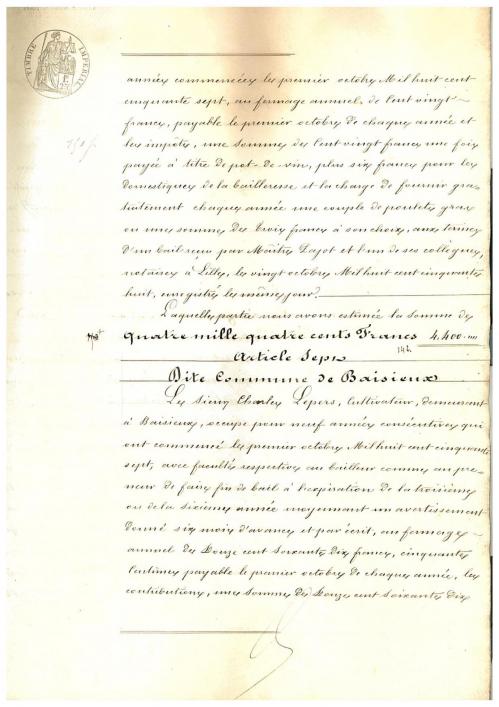 TIMBRE IMPÉRIAL
années commencées le premier octobre Mil huit cent
cinquante sept, au fermage annuel de Cent vingt
francs, payable le premier octobre de chaque année et
les impôts, une somme de Cent vingt francs une fois
payée à titre de pot-de-vin, plus six francs pour les
domestiques de la bailleresse et la charge de fournir gra-
tuitement chaque année une couple de poulets gras
ou une somme de Trois francs à son choix, aux termes
d'un bail reçu par Maîtres Dajot et l'un de ses collègues,
notaires à Lille, le vingt octobre Mil huit cent cinquante
huit, enregistré le même jour.
Laquelle partie nous avons estimée la somme de
Quatre mille quatre cents Francs 4,400.""
Article Sept
142
Dite Commune de Baisieux
Le Sieur Charles Lepers, Cultivateur, demeurant
à Baisieux, occupe pour neuf années consécutives qui
ont commencé le premier octobre Mil huit cent cinquante
sept, avec faculté respective au bailleur comme au pre-
neur de faire fin de bail à l'expiration de la troisième
ou de la sixième année moyennant un avertissement
donné six mois d'avance et par écrit, au fermage
annuel de Douze cent soixante dix francs, cinquante
Centimes payable le premier octobre de chaque année, les
contributions, une somme de Douze cent soixante dix